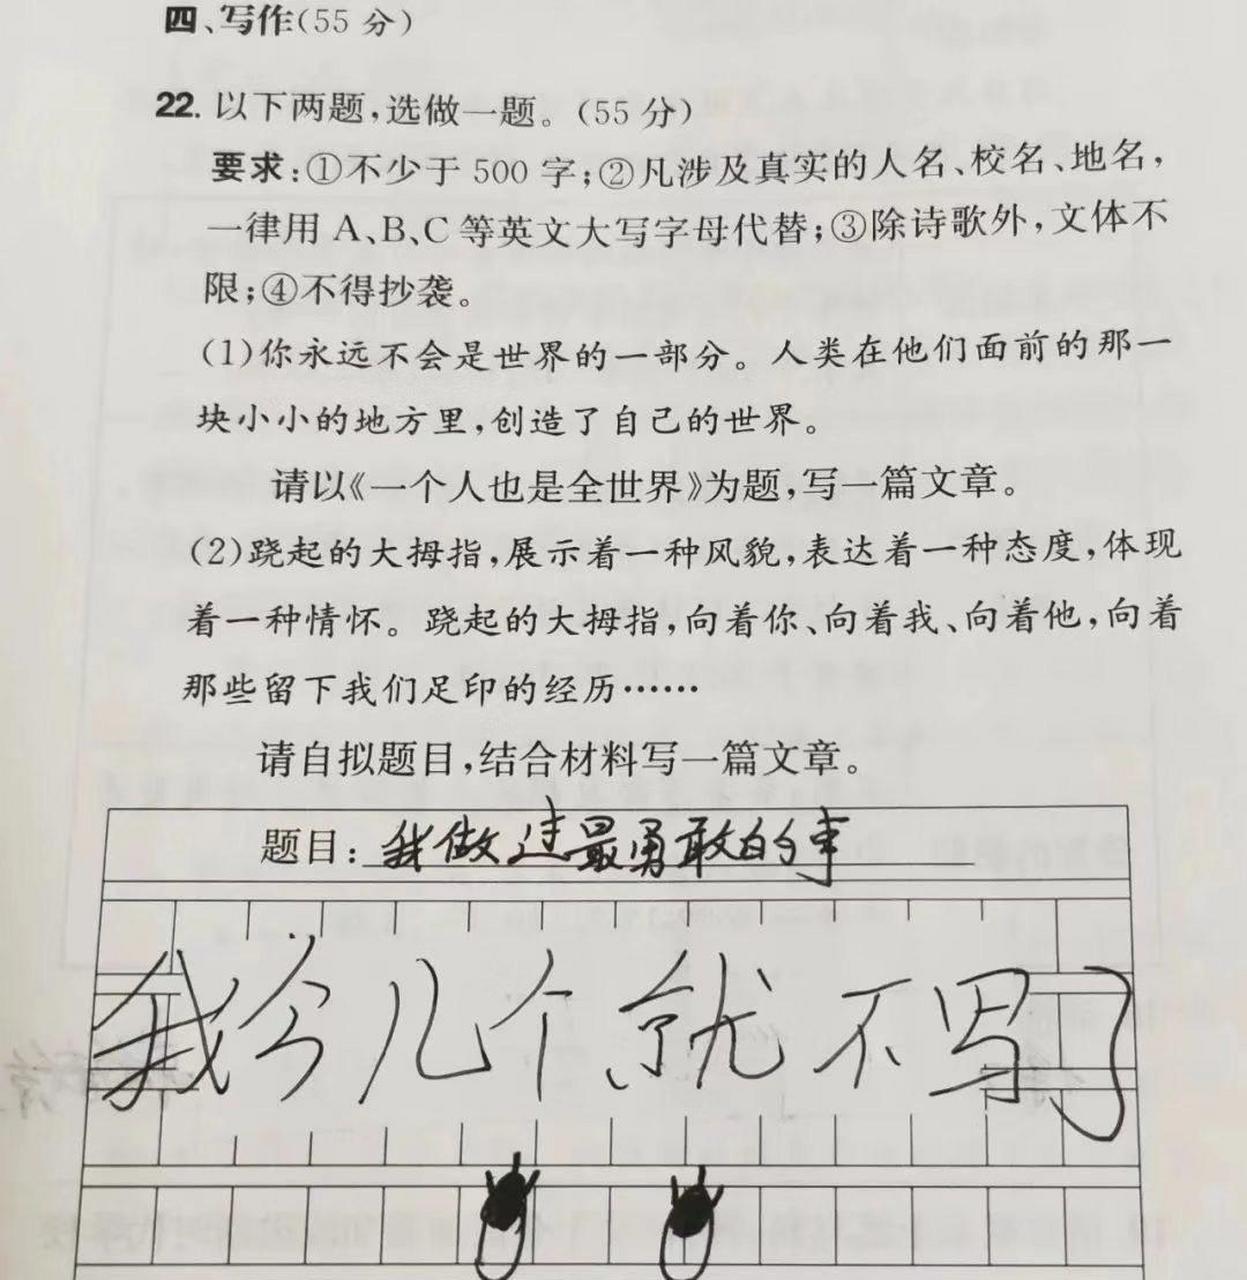 四、写作(55 分)
22. 以下两题,选做一题。(55 分)
要求:①不少于 500 字;②凡涉及真实的人名、校名、地名,
一律用 A、B、C 等英文大写字母代替;③除诗歌外,文体不
限;④不得抄袭。
(1)你永远不会是世界的一部分。人类在他们面前的那一
块小小的地方里,创造了自己的世界。
请以《一个人也是全世界》为题,写一篇文章。
(2)跷起的大拇指,展示着一种风貌,表达着一种态度,体现
着一种情怀。跷起的大拇指,向着你、向着我、向着他,向着
那些留下我们足印的经历……
请自拟题目,结合材料写一篇文章。
题目:我做过最勇敢的事
我今几个就不写了